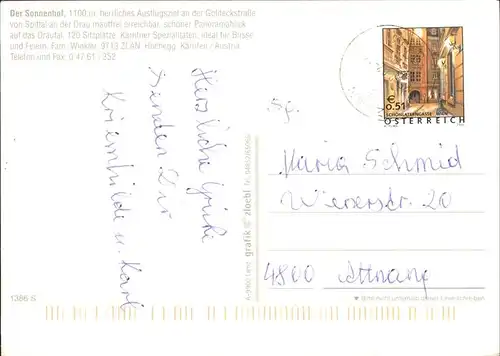 Der Sonnenhof, 1100 m, herrliches Ausflugsziel an der Goldeckstraße
von Spittal an der Drau mautfrei erreichbar, schöner Panoramablick
auf das Drautal. 120 Sitzplätze, Kärntner Spezialitäten, ideal für Busse
und Feiern. Fam. Winkler, 9713 ZLAN, Kärnten / Austria
Telefon und Fax: 0 47 61 / 352
Herzliche Grüße
senden Dir
Kriemhilde u. Karl
1386 S
A-9900 Lienz grafik zloebl
€ 0,51
SCHÖNLATERNGASSE WIEN
ÖSTERREICH
Fr.
Maria Schmid
Wienerstr. 20
4800 Attnang